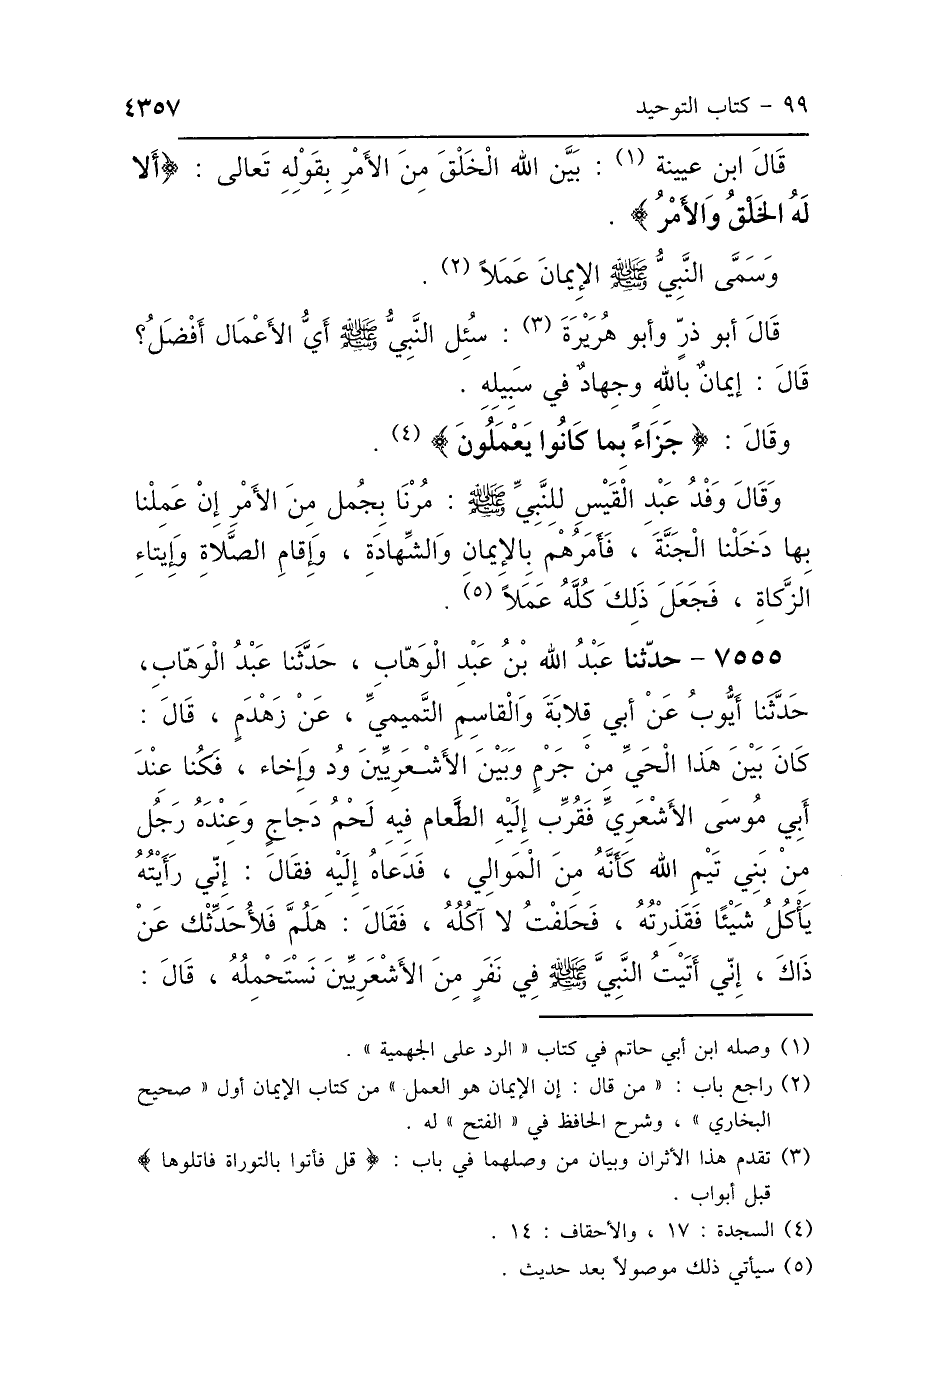 ٩٩ - كتاب التوحيد ٤٣٥٧
قَالَ ابن عيينة (١) : بَيَّن الله الْخَلْقَ مِنَ الأَمْرِ بِقَوْلِهِ تَعالى : ﴿أَلا
لَهُ الخَلْقُ وَالأَمْرُ ﴾ .
وَسَمَّى النَّبِيُّ ﷺ الإيمانَ عَمَلاً (٢) .
قَالَ أبو ذرّ وأبو هُرَيْرَةَ (٣) : سئُل النَّبِيُّ ﷺ أَيُّ الأَعْمَال أَفْضَلُ؟
قَالَ : إيمانٌ بالله وجهادٌ في سَبِيلِهِ .
وقَالَ : ﴿ جَزَاءً بما كَانُوا يَعْمَلُونَ ﴾ (٤) .
وَقَالَ وَفْدُ عَبْدِ الْقَيْسِ للنَّبِيِّ ﷺ : مُرْنَا بِجُمل مِنَ الأَمْرِ إنْ عَمِلْنا
بِها دَخَلْنا الْجَنَّةَ ، فَأَمَرَهُمْ بِالإيمانِ وَالشّهادَةِ ، وَإقَامِ الصَّلاة وَإيتاءِ
الزَّكاةِ ، فَجَعَلَ ذَلِكَ كُلَّهُ عَمَلاً (٥) .
٧٥٥٥ - حدّثنا عَبْدُ الله بْنُ عَبْدِ الْوَهّابِ ، حَدَّثَنا عَبْدُ الْوَهّابِ،
حَدَّثَنا أَيُّوبُ عَنْ أبي قلابَةَ وَالْقاسِمِ التَّميميِّ ، عَنْ زَهْدَمٍ ، قَالَ :
كَانَ بَيْنَ هَذا الْحَيِّ مِنْ جَرْمٍ وَبَيْنَ الأَشْعَرِيِّينَ وُد وَإخاء ، فَكُنا عِنْدَ
أَبِي مُوسَى الأَشْعَرِيِّ فَقُرِّب إلَيْهِ الطَّعام فِيهِ لَحْمُ دَجاجٍ وَعِنْدَهُ رَجُل
مِنْ بَنِي تَيْمِ الله كَأَنَّهُ مِنَ الْمَوالِي ، فَدَعاهُ إلَيْهِ فقَالَ : إنّي رَأَيْتُهُ
يَأْكُلُ شَيْئًا فَقَذِرْتُهُ ، فَحَلفْتُ لا آكُلُهُ ، فَقَالَ : هَلُمَّ فَلأُحَدِّثْك عَنْ
ذَاكَ ، إنّي أَتَيْتُ النَّبِيَّ ﷺ فِي نَفَرٍ مِنَ الأَشْعَرِيِّينَ نَسْتَحْمِلُهُ ، قَالَ :
(١) وصله ابن أبي حاتم في كتاب « الرد على الجهمية » .
(٢) راجع باب : « من قال : إن الإيمان هو العمل » من كتاب الإيمان أول « صحيح
البخاري » ، وشرح الحافظ في « الفتح » له .
(٣) تقدم هذا الأثران وبيان من وصلهما في باب : ﴿ قل فأتوا بالتوراة فاتلوها ﴾
قبل أبواب .
(٤) السجدة : ١٧ ، والأحقاف : ١٤ .
(٥) سيأتي ذلك موصولاً بعد حديث .